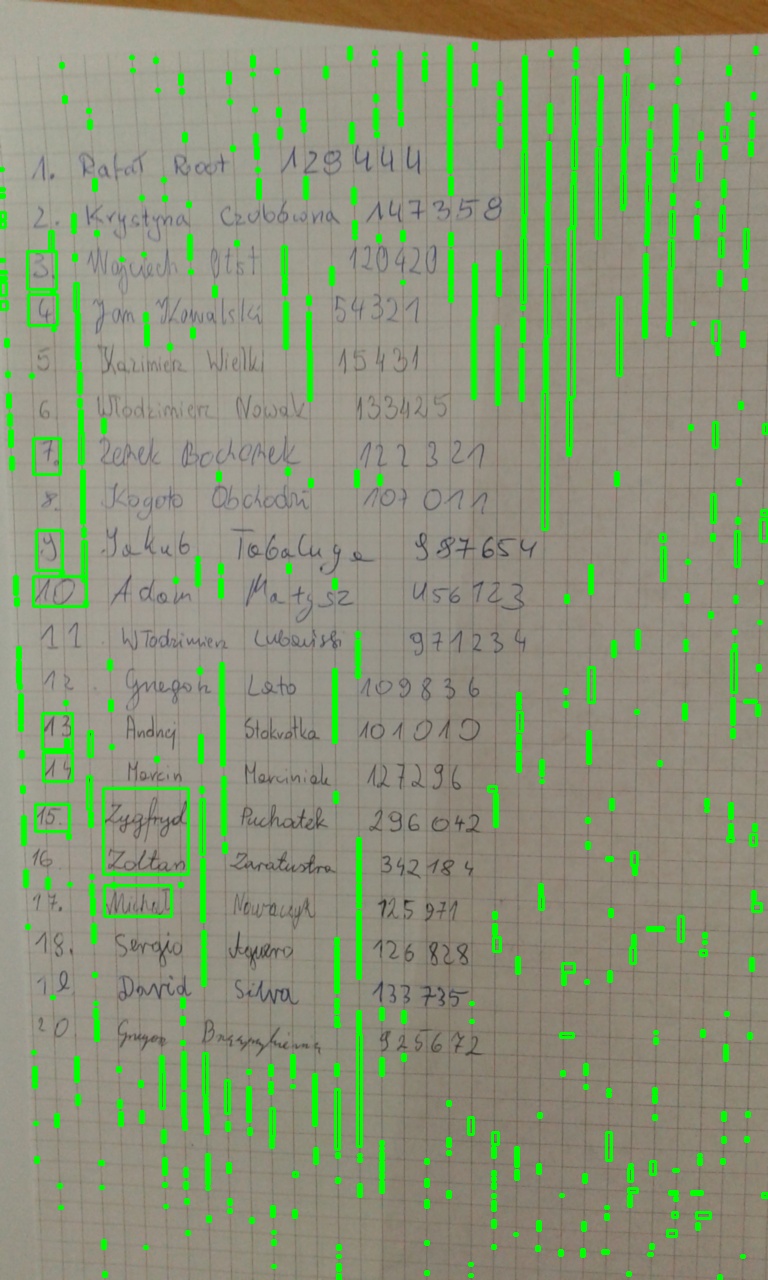 1. Rafał Root 129444
2. Krystyna Czubówna 147358
3. Wojciech Otst 120420
4 Jan Kowalski 54321
5 Kazimierz Wielki 15431
6. Włodzimierz Nowak 133425
7. Zenek Bochenek 122321
8. Kogoto Obchodzi 107011
9 Jakub Tabaluga 987654
10 Adam Matysz 456123
11 Włodzimierz Lubański 971234
12. Grzegorz Lato 109836
13 Andrzej Stokrotka 101010
14 Marcin Marciniak 127296
15. Zygfryd Puchatek 296042
16. Zoltan Zaratustra 342184
17. Michał Nowaczyk 125971
18. Sergio Aguero 126828
19 David Silva 133735
20 Grzegorz 925672